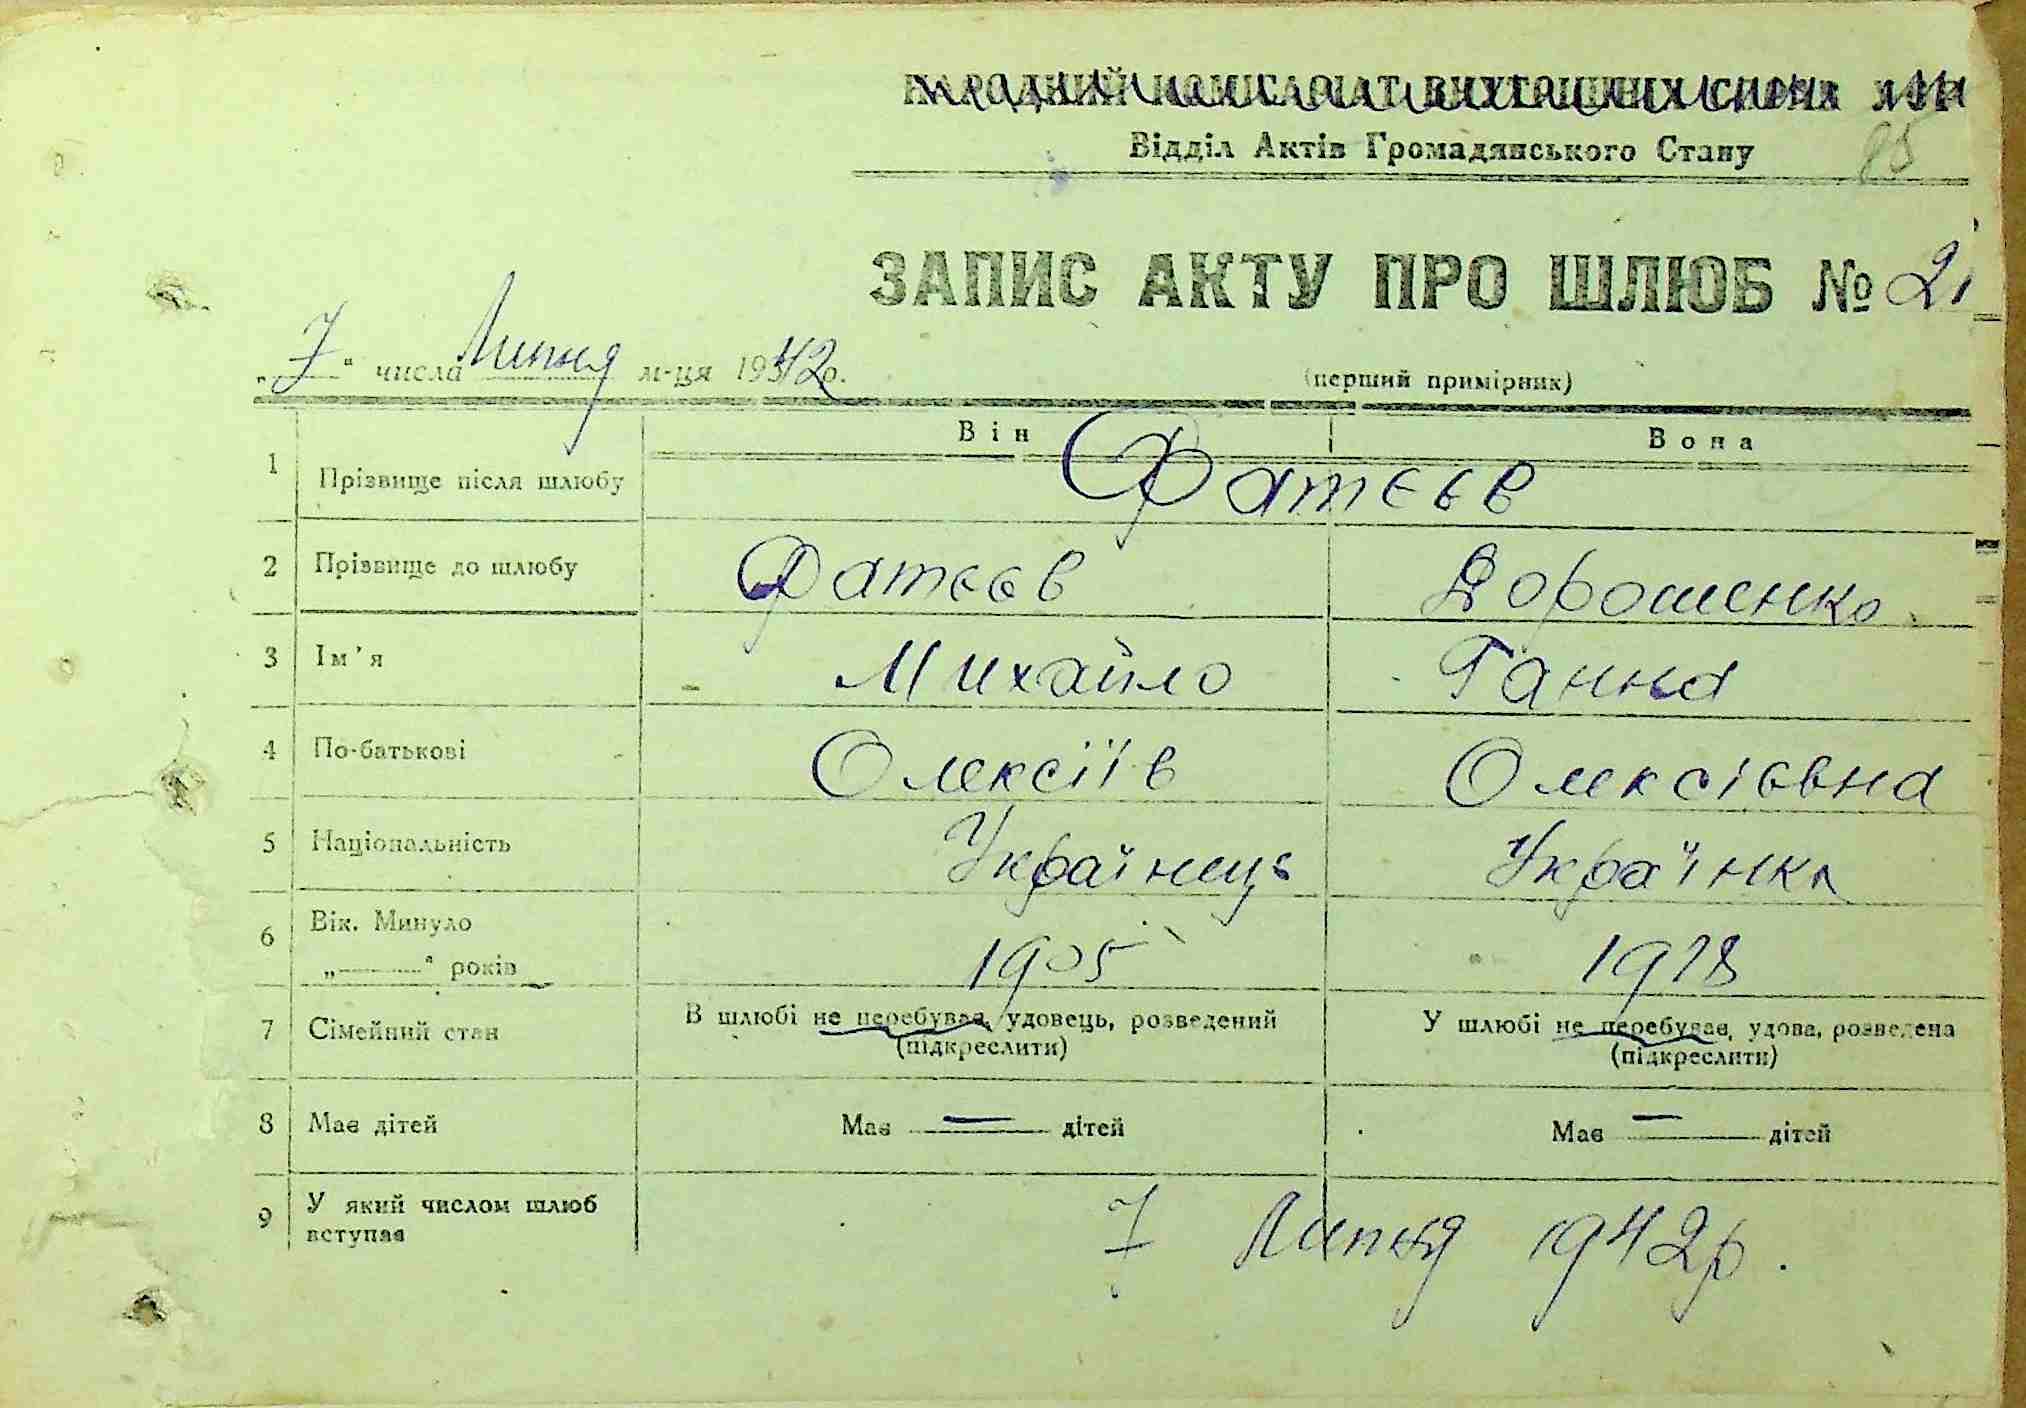 НАРОДНИЙ КОМІСАРІАТ ВНУТРІШНІХ СПРАВ
Відділ Актів Громадянського Стану 85
ЗАПИС АКТУ ПРО ШЛЮБ № 21
„7“ числа Липня м-ця 1942р.
(перший примірник)
Він Вона
1 Прізвище після шлюбу Фатєєв
2 Прізвище до шлюбу Фатєєв Дорошенко
3 Ім'я Михайло Ганна
4 По-батькові Олексіїв Олексієвна
5 Національність Українець Українка
6 Вік. Минуло
„———“ років 1905 1918
7 Сімейний стан В шлюбі не перебував, удовець, розведений У шлюбі не перебував, удова, розведена
(підкреслити) (підкреслити)
8 Має дітей Має — дітей Має — дітей
9 У який числом шлюб
вступав 7 Липня 1942р.